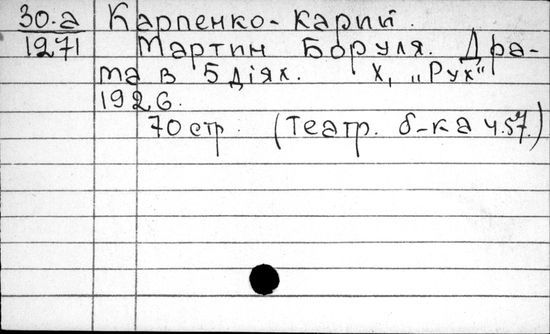 30.а Карпенко-Карий.
1271 Мартин Боруля. Дра-
ма в 5 діях. Х, „Рух“
1926.
70 стр. (Театр. б-ка ч.57.)